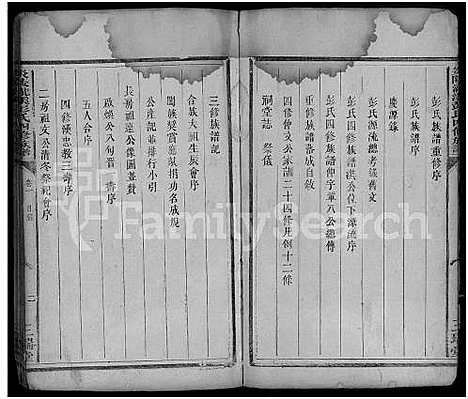 彭氏族譜重修序
慶源錄
彭氏源流總考載舊文
彭氏四修族譜洪公位下源流序
彭氏四修族譜仲字軍八公總傳
重修族譜告成自敘
四修仲文公家譜二十四修凡例十二條
祠堂誌 祭儀
三修族譜記
合族大祖生辰會序
公產記並排行小引
闔族獎賞應試捐功名成規
長房祖達公像圖並贊
啟娛公八旬音 壽序
五人合序
四修漢忠教三壽序
二房祖文公清冬祭祀會序
三瑞堂
FamilySearch